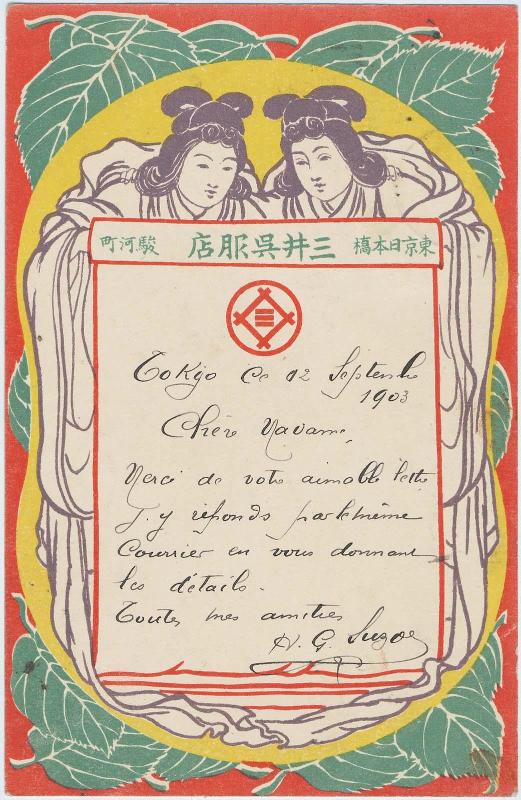 東京日本橋 三井呉服店 駿河町
三
Tokyo Ce 12 Septembre
1903
Chère Madame,
Merci de votre aimable lettre
J'y réponds par le même
Courrier en vous donnant
les détails.
Toutes mes amitiés
H. G.